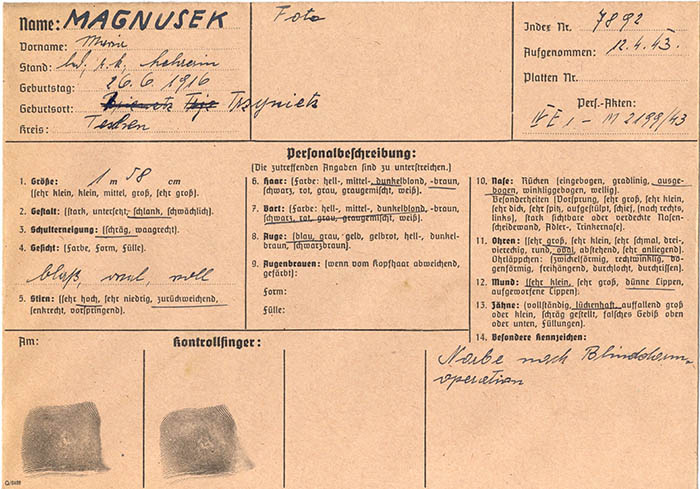 Name: MAGNUSEK
Vorname: Maria
Stand: led, r.k, Lehrerin
Geburtstag: 26.6.1916
Geburtsort: Trzynietz
Kreis: Teschen
Foto
Index Nr. 7892
Aufgenommen: 12.4.43.
Platten Nr.
Pers.-Akten:
IV E 1 - M 2199/43
Personalbeschreibung:
(Die zutreffenden Angaben sind zu unterstreichen.)
1. Größe: 1 m 58 cm
(sehr klein, klein, mittel, groß, sehr groß).
2. Gestalt: (stark, untersetzt, schlank, schwächlich).
3. Schulterneigung: (schräg, waagrecht).
4. Gesicht: (Farbe, Form, Fülle).
blaß, oval, voll
5. Stirn: (sehr hoch, sehr niedrig, zurückweichend,
senkrecht, vorspringend).
6. Haar: (Farbe: hell-, mittel-, dunkelblond, -braun,
schwarz, rot, grau, graugemischt, weiß).
7. Bart: (Farbe: hell-, mittel-, dunkelblond, -braun,
schwarz, rot, grau, graugemischt, weiß).
8. Auge: (blau, grau, gelb, gelbrot, hell-, dunkel-
braun, schwarzbraun).
9. Augenbrauen: (wenn vom Kopfhaar abweichend,
gefärbt):
Form:
Fülle:
10. Nase: Rücken (eingebogen, gradlinig, ausge-
bogen, winkliggebogen, wellig).
Besonderheiten (Vorsprung, sehr groß, sehr klein,
sehr dick, sehr spitz, aufgestülpt, schief, [nach rechts,
links], stark sichtbare oder verdeckte Nasen-
scheidewand, Adler-, Trinkernase).
11. Ohren: (sehr groß, sehr klein, sehr schmal, drei-
eckig, rund, oval, abstehend, sehr anliegend).
Ohrläppchen: (zwickelförmig, rechtwinklig, bo-
genförmig, freihängend, durchlocht, durchrissen).
12. Mund: (sehr klein, sehr groß, dünne Lippen,
aufgeworfene Lippen).
13. Zähne: (vollständig, lückenhaft, auffallend groß
oder klein, schräg gestellt, falsches Gebiß oben
oder unten, Füllungen).
14. Besondere Kennzeichen:
Narbe nach Blinddarm-
operation
Am:
Kontrollfinger: